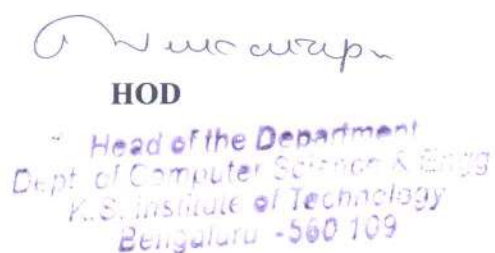 HOD
Head of the Department
Dept. of Computer Science & Engg
K.S. Institute of Technology
Bengaluru -560 109